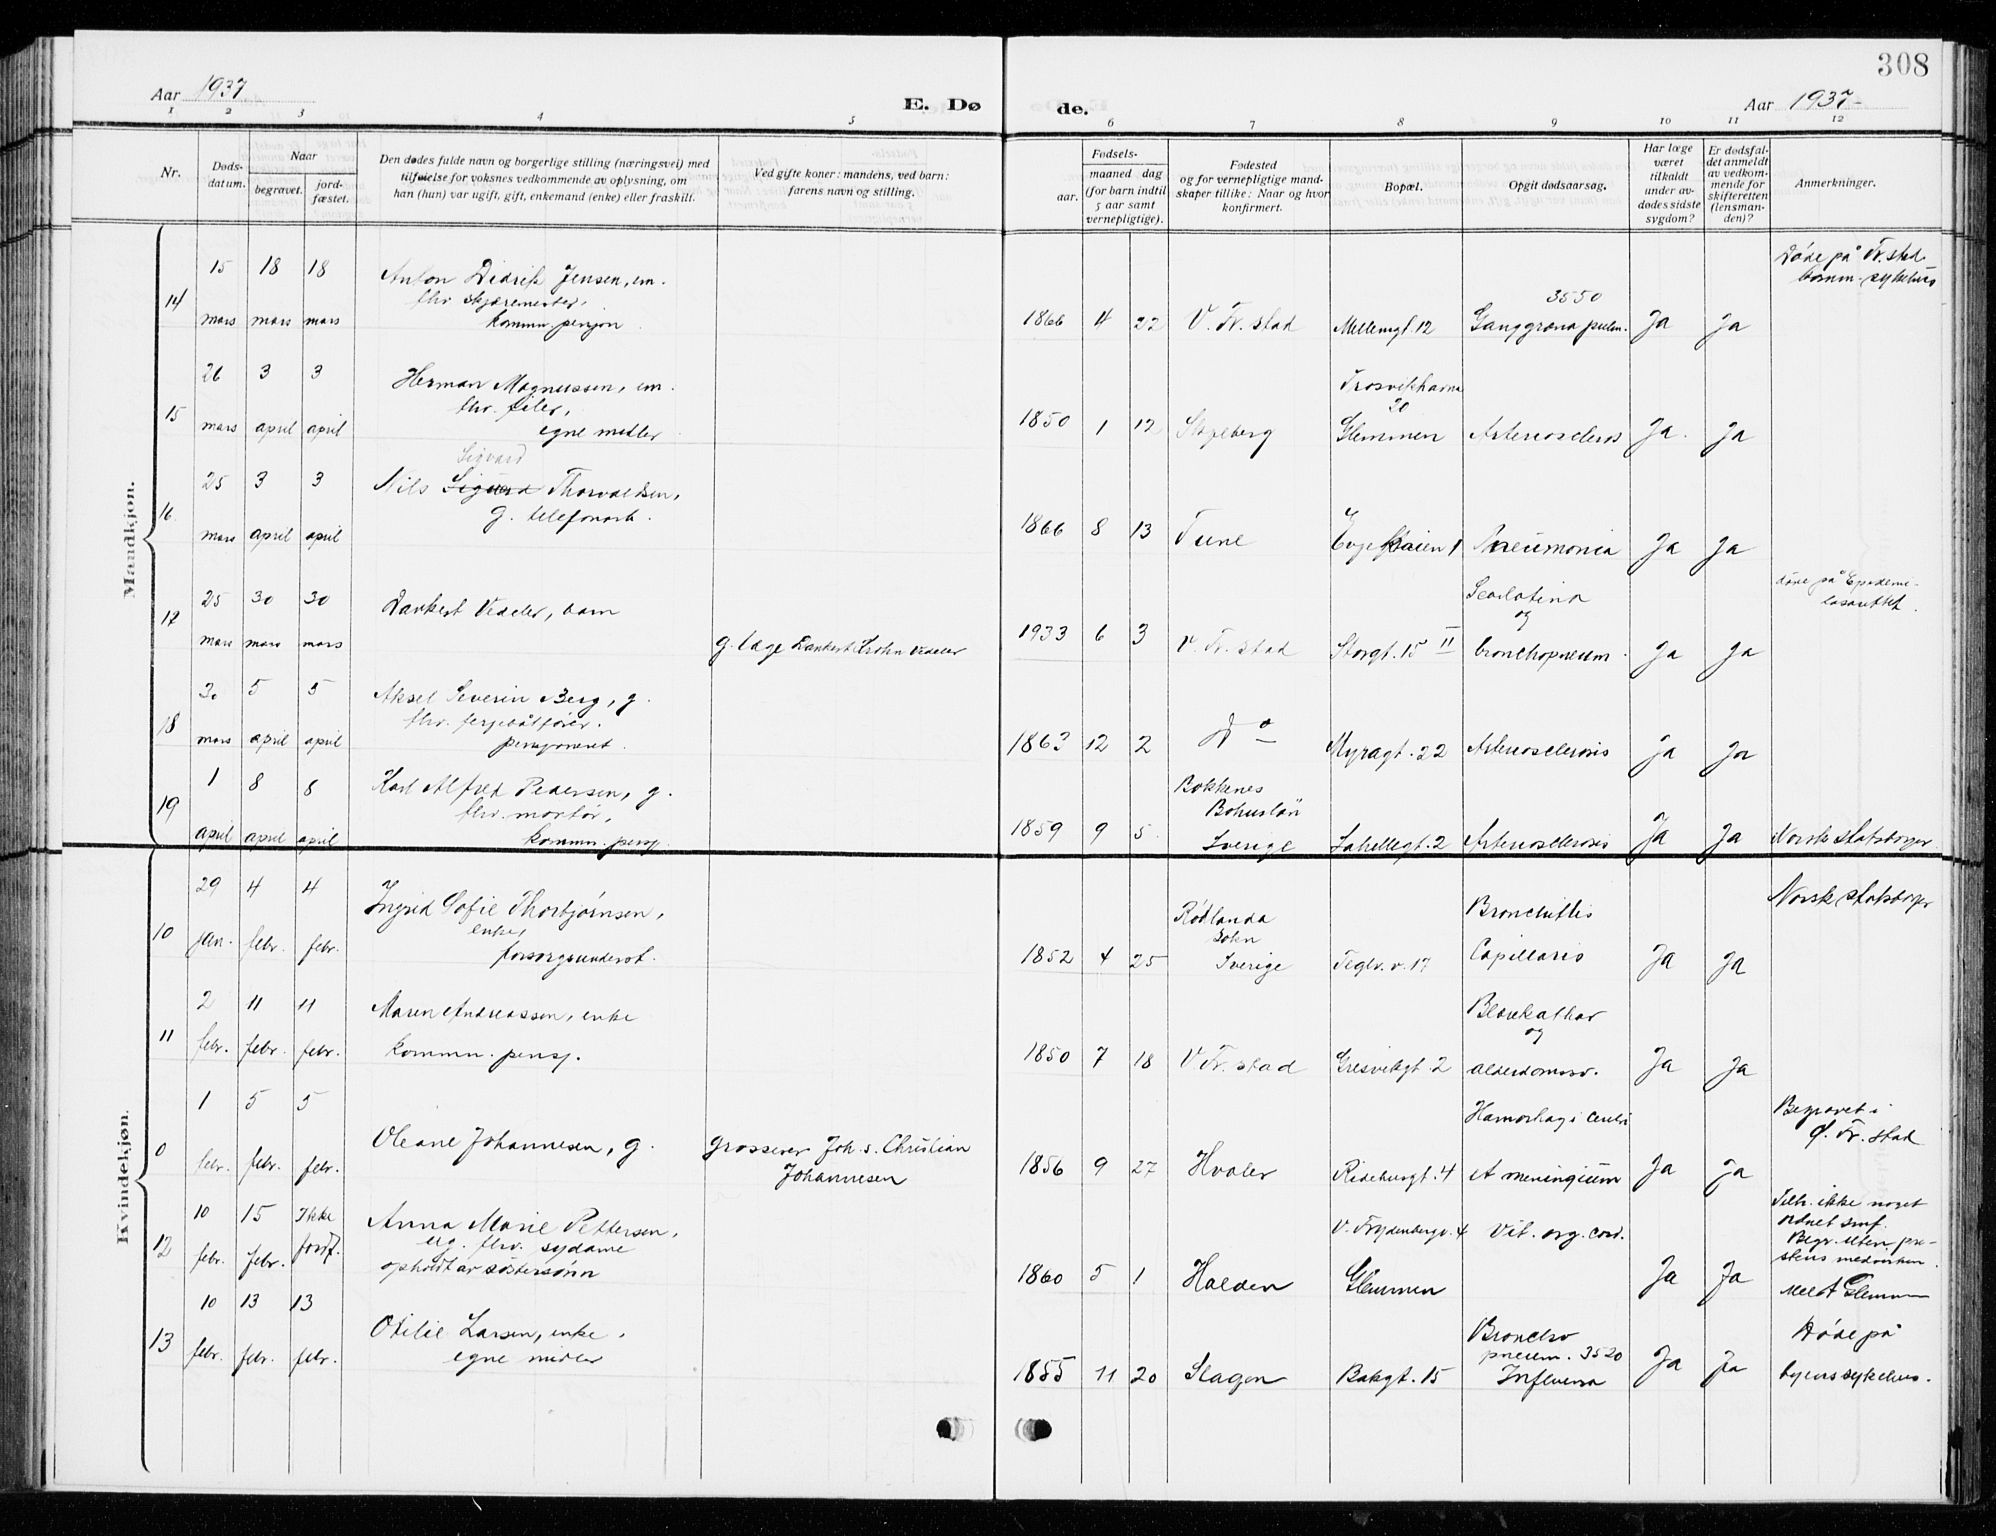 308
Aar 1937
E. Dø
de.
Aar 1937-
1 2 3 4 5 6 7 8 9 10 11 12
Nr.
Døds-
datum.
Naar
begravet.
jord-
fæstet.
Den dødes fulde navn og borgerlige stilling (næringsvei) med
tilføielse for voksnes vedkommende av oplysning, om
han (hun) var ugift, gift, enkemand (enke) eller fraskilt.
Ved gifte koner: mandens, ved barn:
farens navn og stilling.
Fødsels-
aar.
maaned dag
(for barn indtil
5 aar samt
vernepligtige).
Fødested
og for vernepligtige mand-
skaper tillike: Naar og hvor
konfirmert.
Bopæl.
Opgit dødsaarsag.
Har læge
været
tilkaldt
under av-
dødes sidste
sygdom?
Er dødsfal-
det anmeldt
av vedkom-
mende for
skifteretten
(lensman-
den)?
Anmerkninger.
Mandkjøn.
14
15 mars
18 mars
18 mars
Anton Didrik Jensen, em.
fhv. skjæremester,
kommn. pensjon
1866 4 22
V. Fr.stad
Mellemgt. 12
3550
Ganggræna pulm.
Ja
Ja
Døde på Fr.stad
komm. sykehus
15
26 mars
3 april
3 april
Herman Magnussen, em.
fhv. filer,
egne midler
1850 1 12
Skjeberg
Trosvikhavna
20
Glemmen
Arterioscleros
Ja.
Ja
16
25 mars
3 april
3 april
Sigvard
Nils Sigurd Thorvaldsen,
g. telefonarb.
1866 8 13
Tune
Evjekaien 1
Pneumonia
Ja
Ja
17
25 mars
30 mars
30 mars
Dankert Vedeler, barn
g. læge Dankert Krohn Vedeler
1933 6 3
V. Fr.stad
Storgt. 15 II
Scarlatina
og
bronchopneum.
Ja
Ja
døde på Epidemi-
lasarettet.
18
30 mars
5 april
5 april
Aksel Severin Berg, g.
fhv. fergebåtfører.
pensjonert.
1863 12 2
Do
Myragt. 22
Arteriosclerosis
Ja
Ja
19
1 april
8 april
8 april
Karl Alfred Pedersen, g.
fhv. mortør,
kommn. pensj.
1859 9 5
Bokkenes
Bohuslän
Sverige
2
Arteriosclerosis
Ja
Ja
Norsk statsborger
Kvindekjøn.
10
29 jan.
4 febr.
4 febr.
Ingrid Sofie Thorbjørnsen,
enke,
forsorgsunderst.
1852 4 25
Rödlanda
Sokn
Sverige
Teglv. v. 17
Bronchittis
Capillaris
Ja
Ja
Norsk statsborger
11
2 febr.
11 febr.
11 febr.
Maren Andreassen, enke
kommn. pensj.
1850 7 18
V. Fr.stad
Gresvikgt. 2
Blærekathar
og
alderdomssv.
Ja
Ja
0
1 febr.
5 febr.
5 febr.
Oleane Johannesen, g.
grosserer Joh.s. Christian
Johannesen
1856 9 27
Hvaler
Ridehusgt. 4
Hæmorhagi cerebri
et meningium
Ja
Ja
Begravet i
Ø. Fr.stad
12
10 febr.
15 febr.
Ikke
jordf.
Anna Marie Pettersen,
ug. fhv. sydame
opholdt av søstersønn
1860 5 1
Halden
V. Frydenbergv. 4
Glemmen
Vit. org. cord.
Ja
Ja
Tilh. ikke noget
ordnet smf.
Begr. uten pre-
stens medvirken.
Meldt Glemmen
13
10 febr.
13 febr.
13 febr.
Otilie Larsen, enke,
egne midler
1855 11 20
Slagen
Bakgt. 15
Broncho
pneum. 3520
Influensa
Ja
Ja
Døde på
byens sykehus.